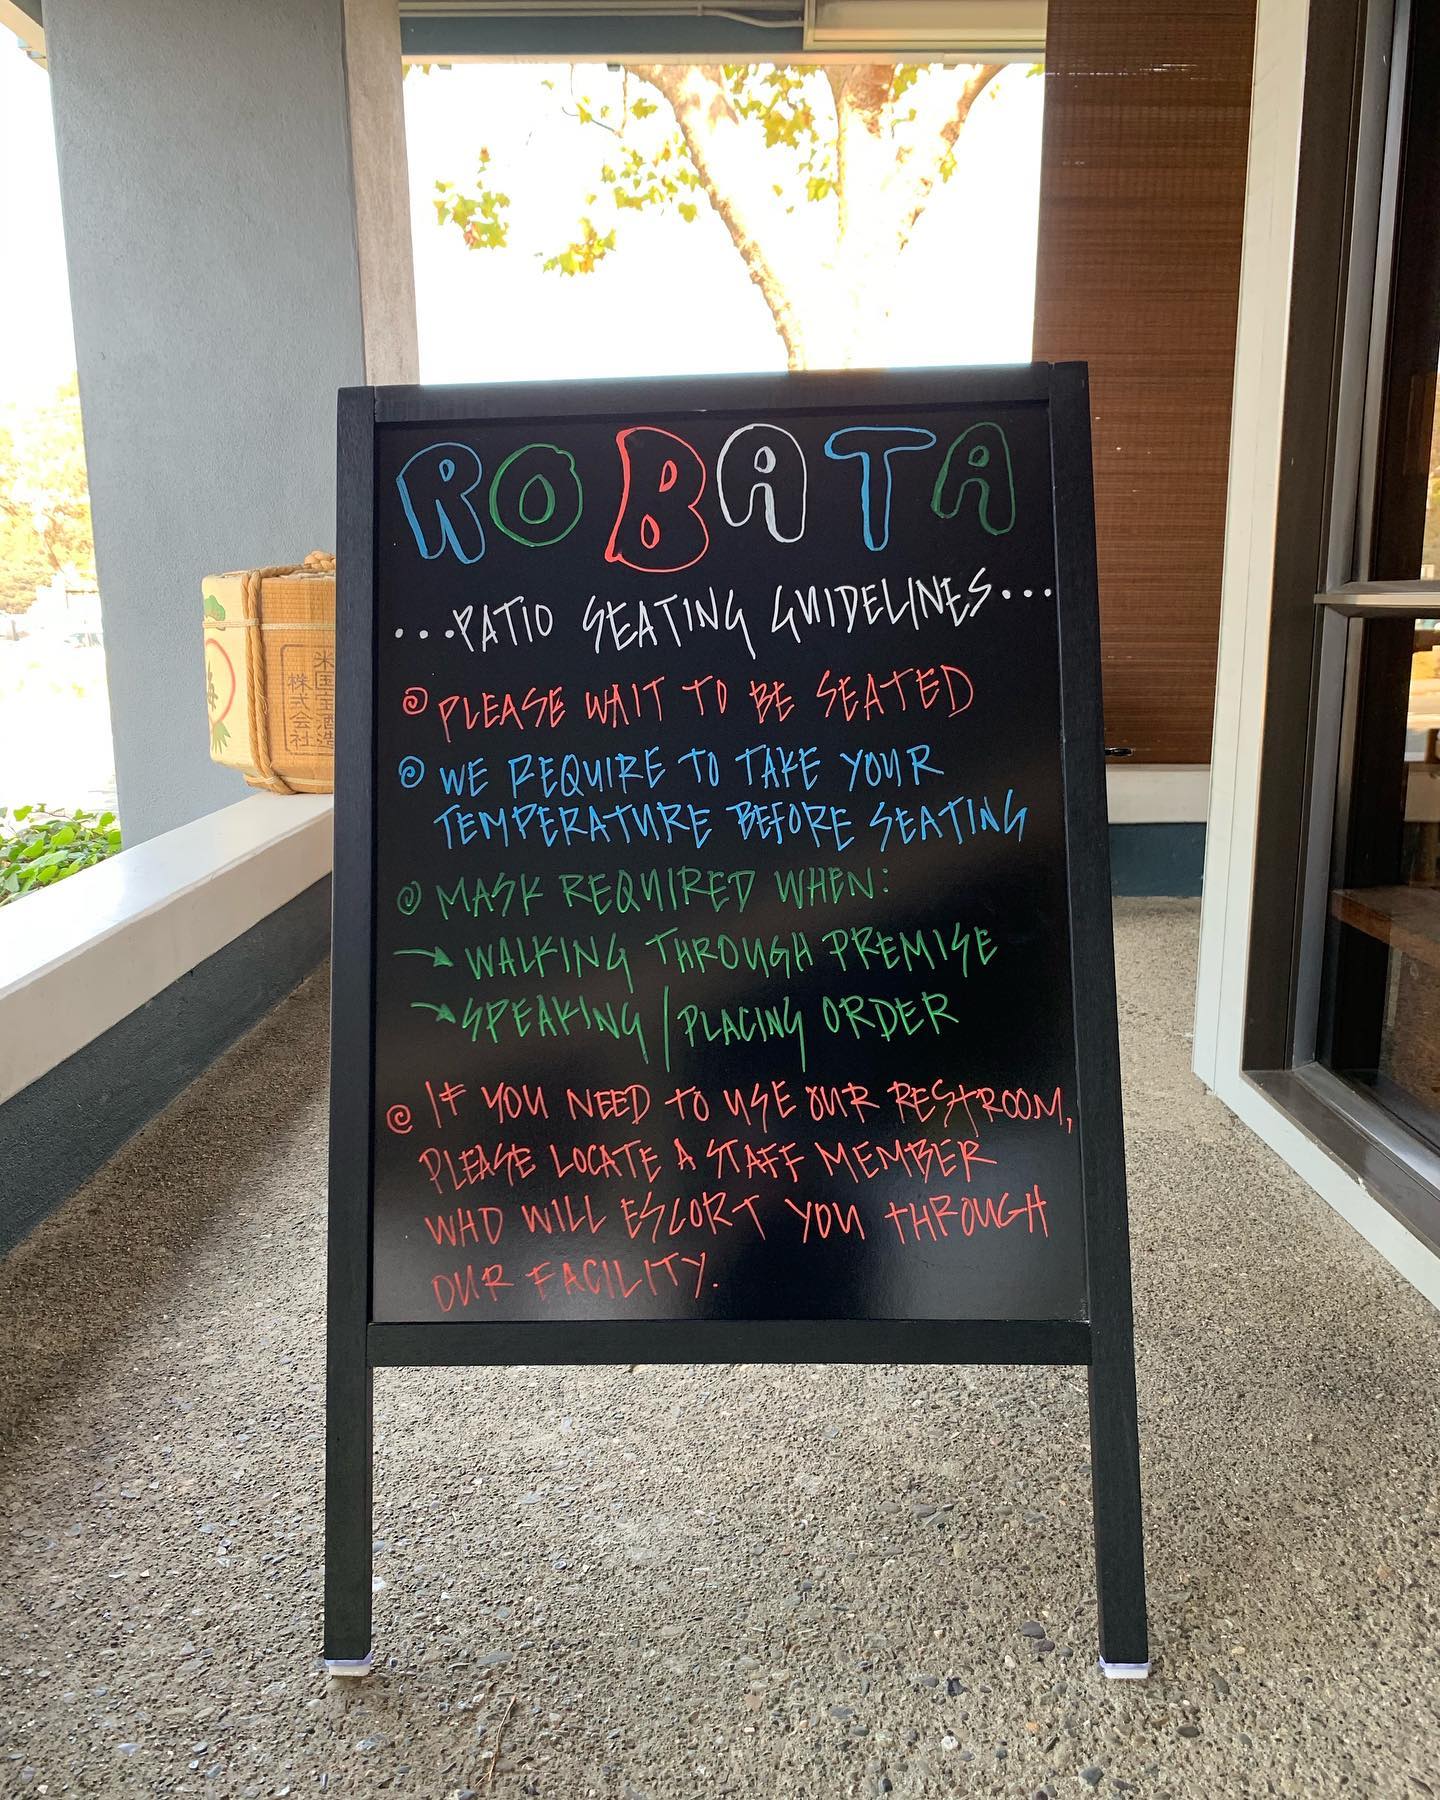 ROBATA
...PATIO SEATING GUIDELINES...
PLEASE WAIT TO BE SEATED
WE REQUIRE TO TAKE YOUR
TEMPERATURE BEFORE SEATING
MASK REQUIRED WHEN:
→ WALKING THROUGH PREMISE
→ SPEAKING / PLACING ORDER
IF YOU NEED TO USE OUR RESTROOM,
PLEASE LOCATE A STAFF MEMBER
WHO WILL ESCORT YOU THROUGH
OUR FACILITY.
米国宝酒造
株式会社